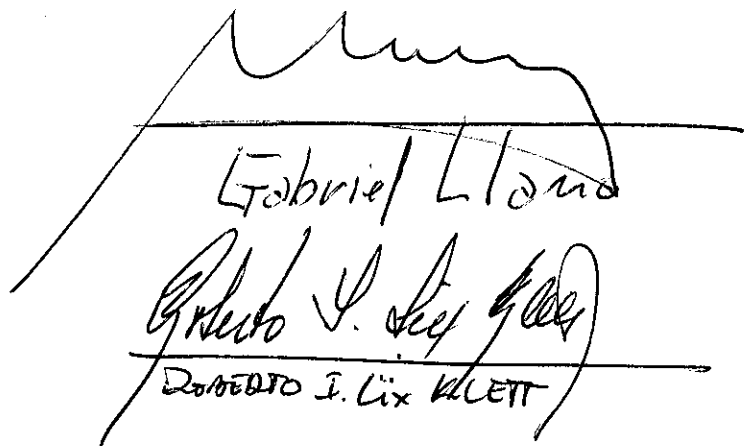 Gabriel Llano
Roberto I. Lix Klett
ROBERTO I. Lix KLETT